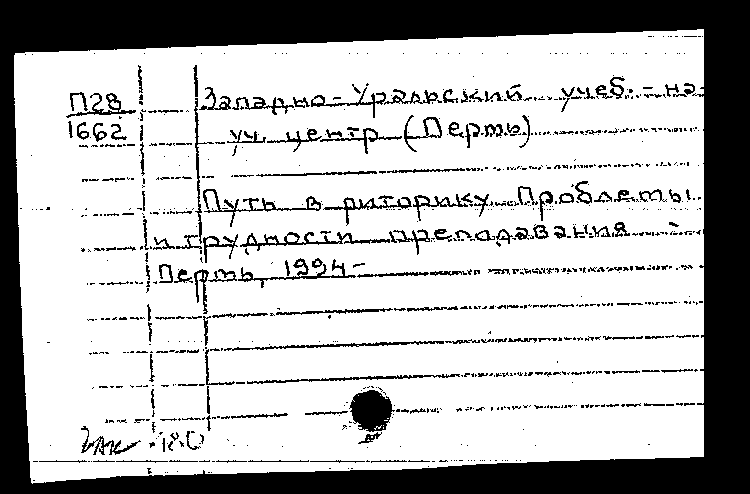 П28
1662
Западно-Уральский учеб.-на-
уч. центр (Пермь)
Путь в риторику Проблемы
и трудности преподавания -
Пермь, 1994-